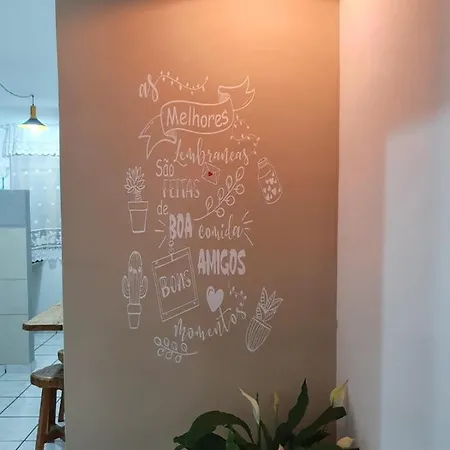 as
Melhores
Lembranças
São
FEITAS
de
BOA comida
AMIGOS
BONS
Momentos